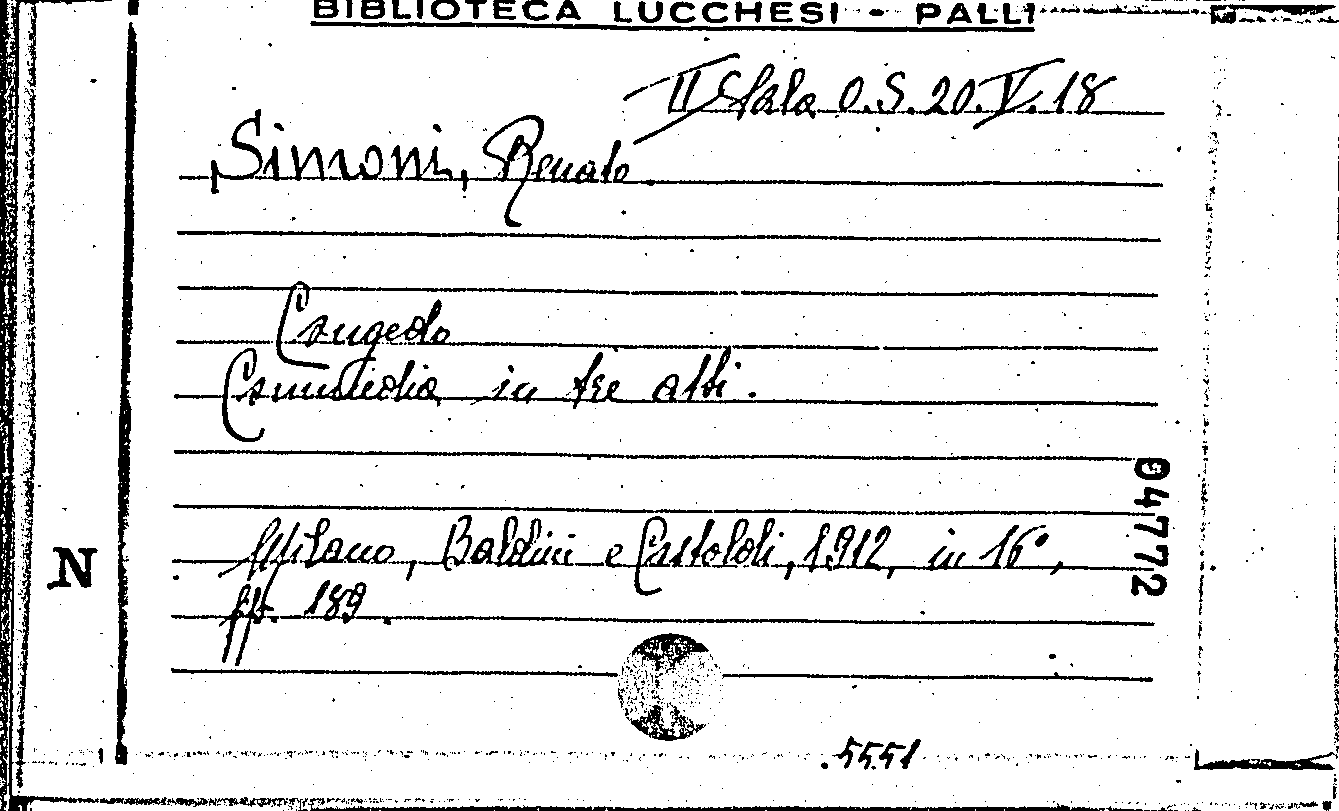 BIBLIOTECA LUCCHESI - PALLI
II Sala O.S. 20.V.18
Simoni, Renato.
Congedo
Commedia in tre atti.
04772
Milano, Baldini e Castoldi, 1912, in 16°,
N
pp. 189.
5551